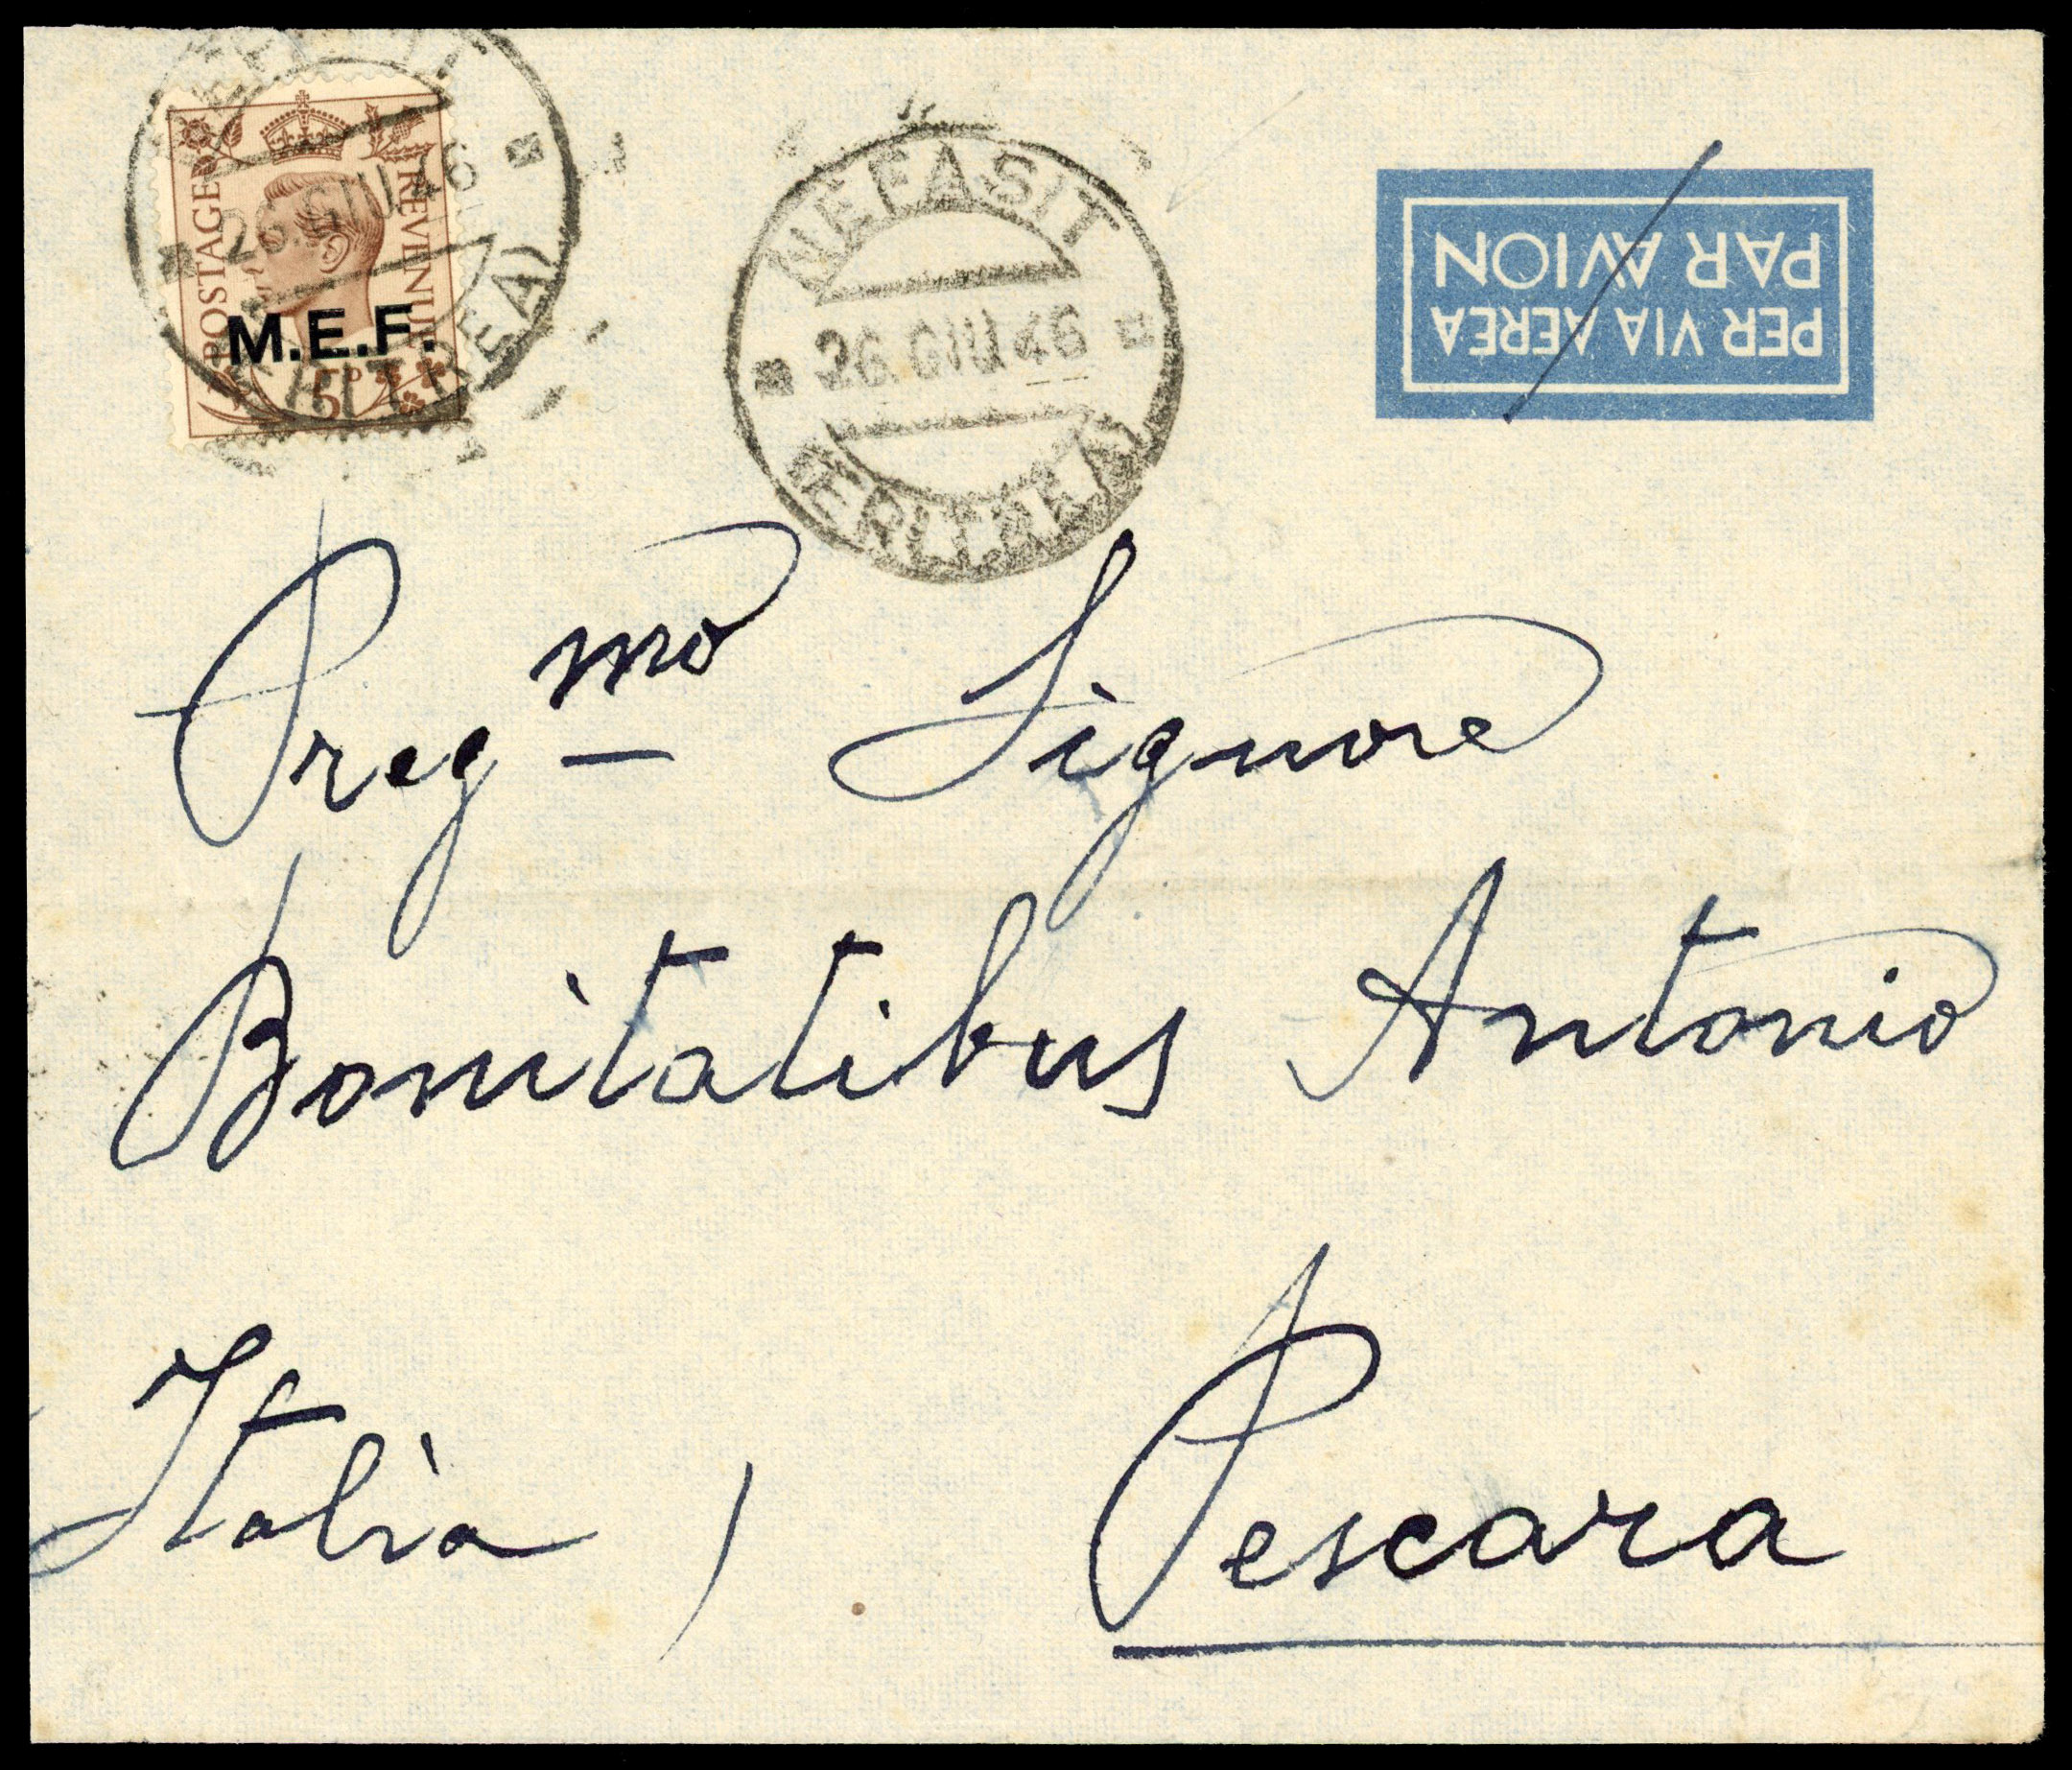 POSTAGE REVENUE
M.E.F.
26.GIU.46
NEFASIT
26.GIU.46
(ERITREA)
PER VIA AEREA
PAR AVION
Preg mo Signore
Bonitatibus Antonio
Italia, Pescara